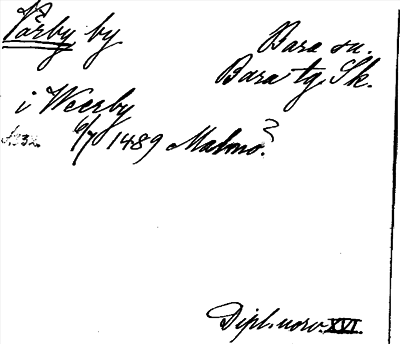 Värby by
Bara sn.
Bara tg Sk.
i Weerby
s. 332. 6/7 1489 Malmö?
Dipl. norv. XVI.